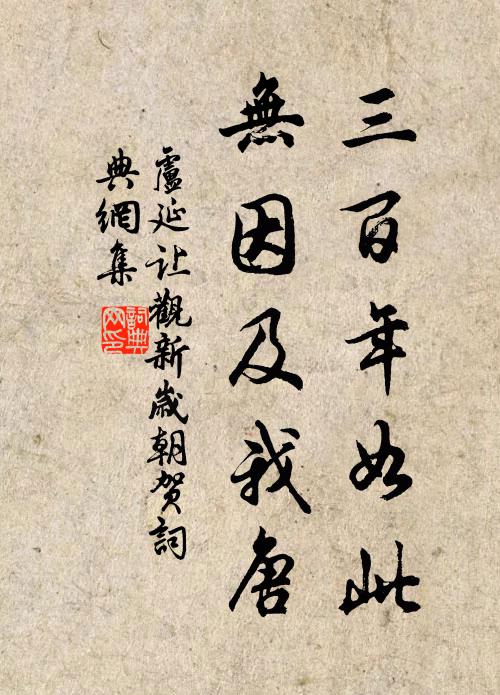 三百年如此
無因及我唐
盧延让觀新歲朝贺詞
典網集
詞典网印